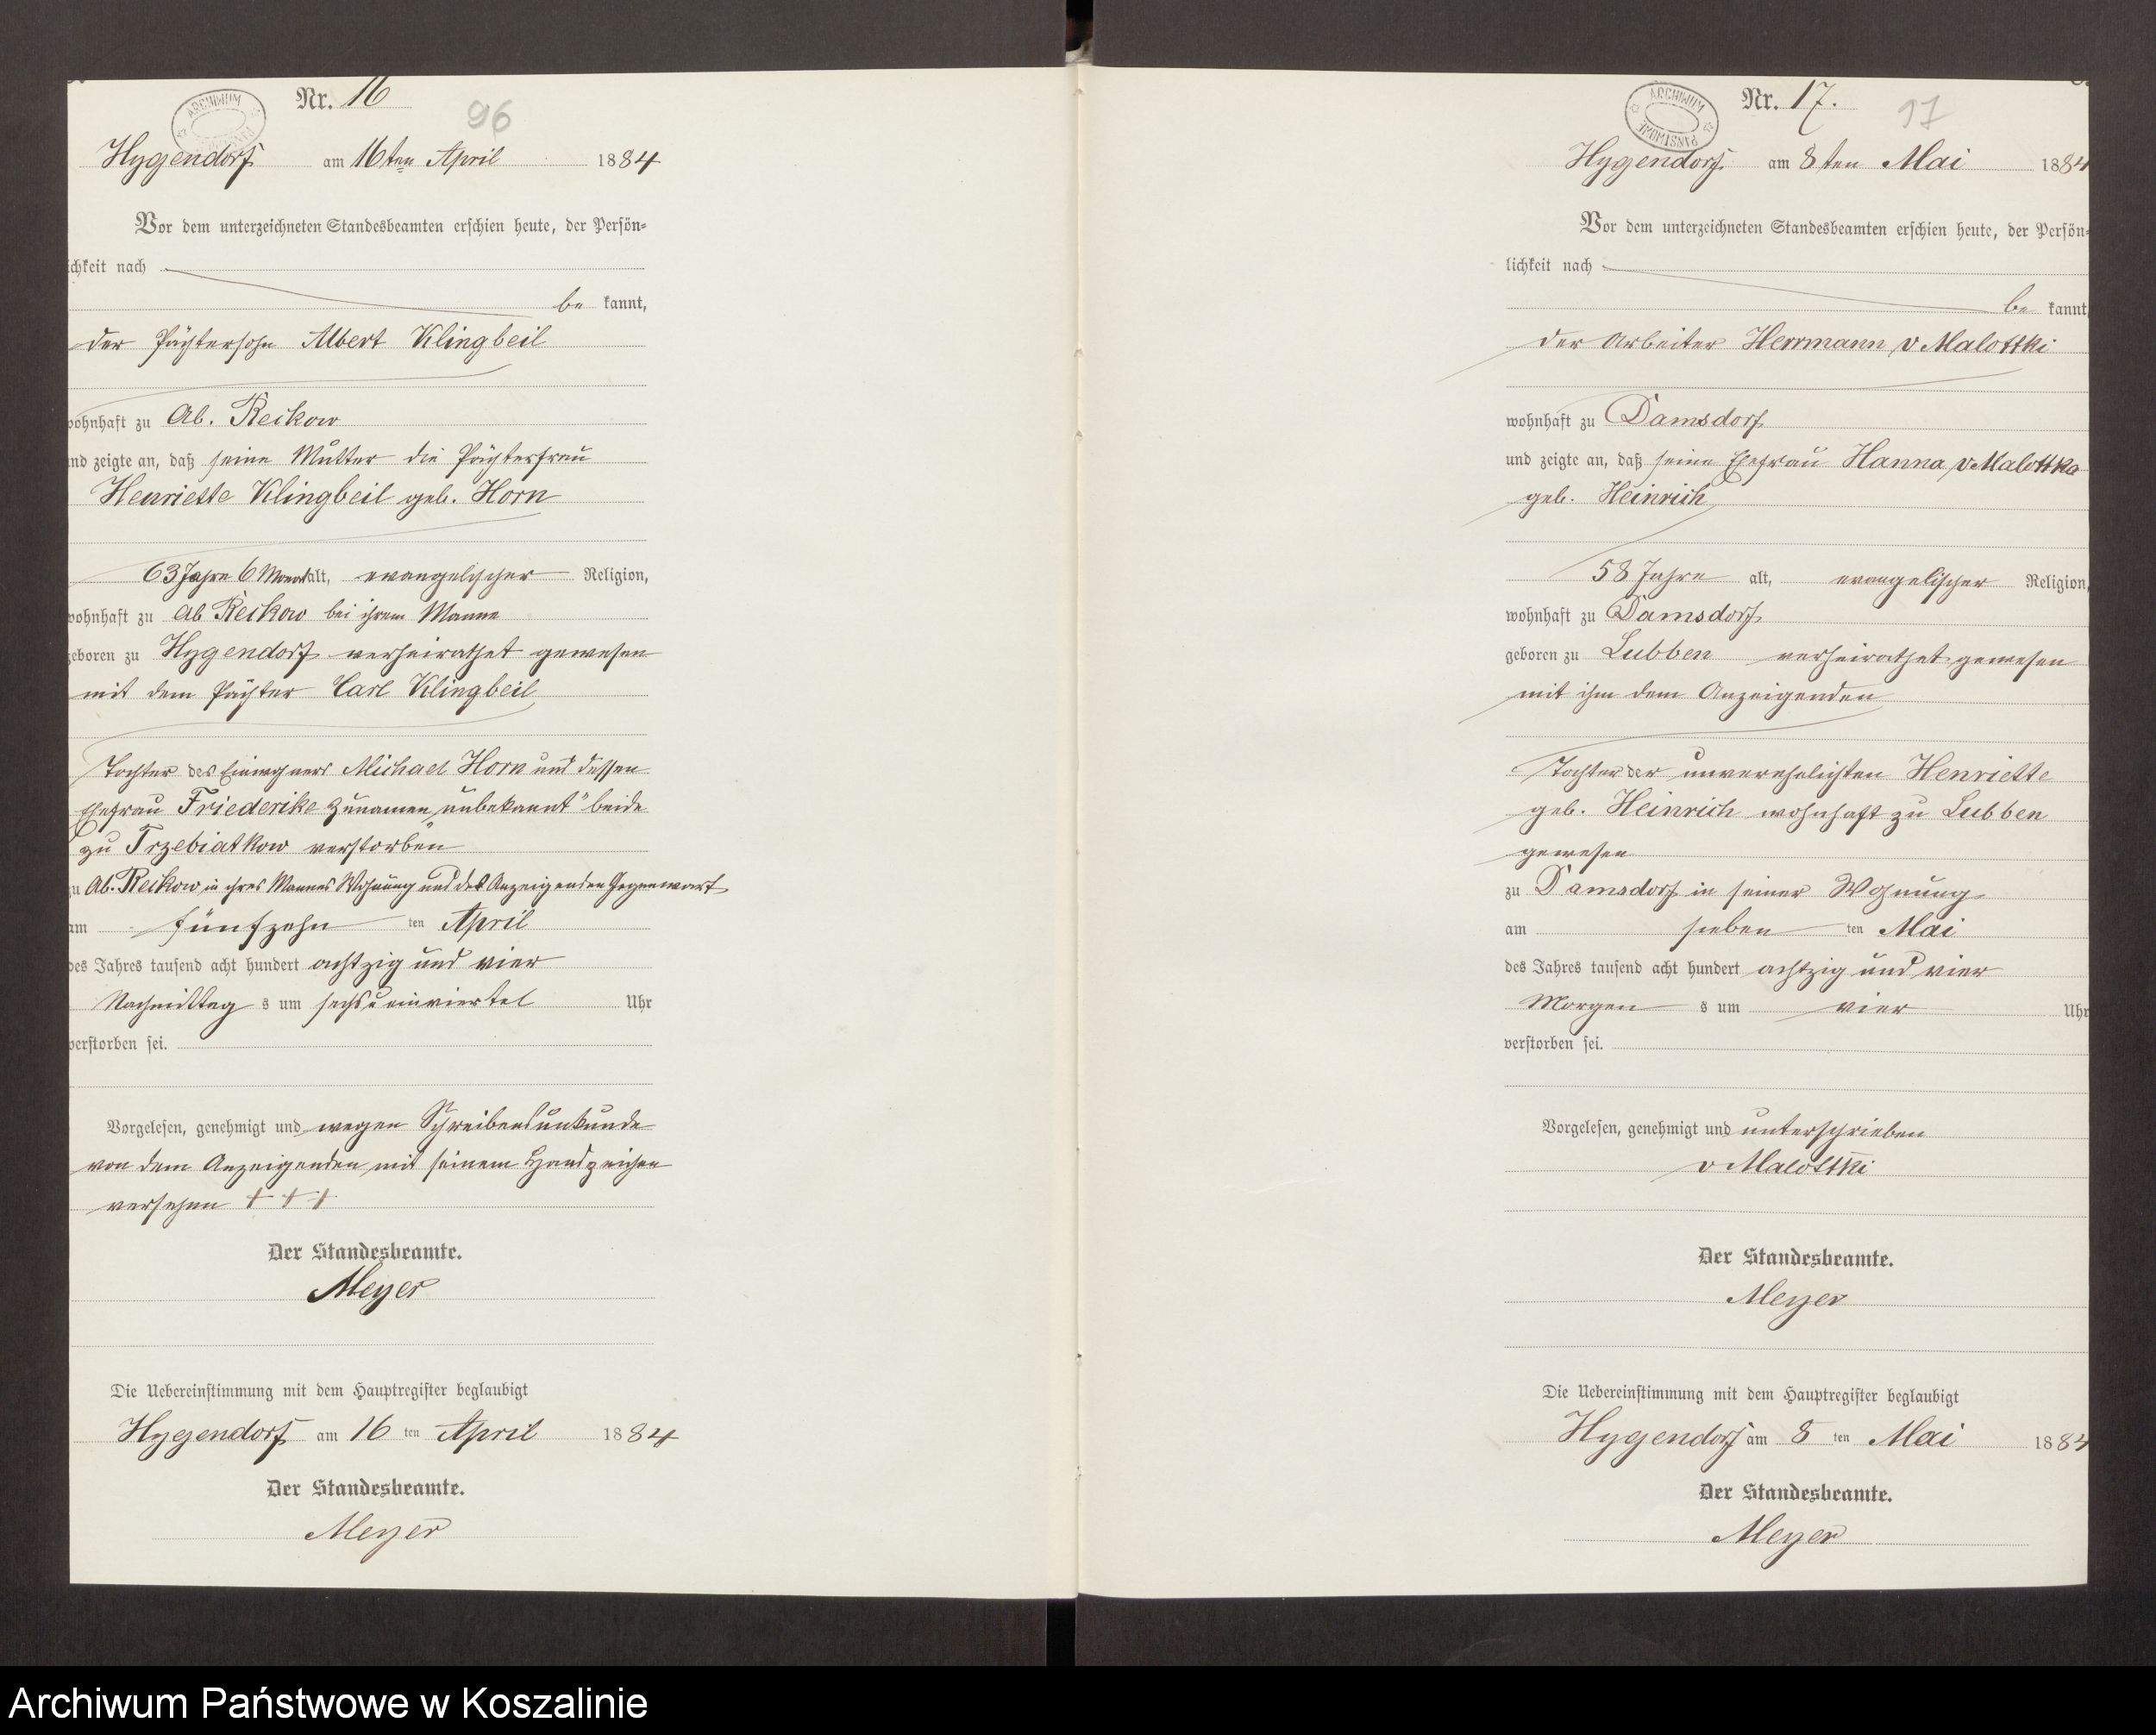 Nr. 16
96
ARCHIWUM
Hygendorf am 16ten April 1884
Vor dem unterzeichneten Standesbeamten erschien heute, der Persön-
lichkeit nach
be kannt,
der Pächtersohn Albert Klingbeil
wohnhaft zu Ab. Reckow
und zeigte an, daß seine Mutter die Pächterfrau
Henriette Klingbeil geb. Horn
63 Jahre 6 Monat alt, evangelischer Religion,
wohnhaft zu Ab Reckow bei ihrem Manne
geboren zu Hygendorf verheirathet gewesen
mit dem Pächter Carl Klingbeil
Tochter des Einwohners Michael Horn und dessen
Ehefrau Friederike Zunamen „unbekannt" beide
zu Trzebiatkow verstorben
zu Ab. Reckow in ihres Mannes Wohnung und des Anzeigenden Gegenwart
am fünfzehn ten April
des Jahres tausend acht hundert achtzig und vier
Nachmittag s um sechs u einviertel Uhr
verstorben sei.
Vorgelesen, genehmigt und wegen Schreibensunkunde
von dem Anzeigenden mit seinem Handzeichen
versehen + + +
Der Standesbeamte.
Meyer
Die Uebereinstimmung mit dem Hauptregister beglaubigt
Hygendorf am 16 ten April 1884
Der Standesbeamte.
Meyer
Nr. 17.
97
ARCHIWUM PAŃSTWOWE
Hygendorf am 8ten Mai 1884
Vor dem unterzeichneten Standesbeamten erschien heute, der Persön-
lichkeit nach
be kannt,
der Arbeiter Herrmann v Malottki
wohnhaft zu Damsdorf
und zeigte an, daß seine Ehefrau Hanna v Malottka
geb. Heinrich
58 Jahre alt, evangelischer Religion,
wohnhaft zu Damsdorf
geboren zu Lubben verheirathet gewesen
mit ihm dem Anzeigenden
Tochter der unverehelichten Henriette
geb. Heinrich wohnhaft zu Lubben
gewesen
zu Damsdorf in seiner Wohnung
am sieben ten Mai
des Jahres tausend acht hundert achtzig und vier
Morgen s um vier Uhr
verstorben sei.
Vorgelesen, genehmigt und unterschrieben
v Malottki
Der Standesbeamte.
Meyer
Die Uebereinstimmung mit dem Hauptregister beglaubigt
Hygendorf am 8 ten Mai 1884
Der Standesbeamte.
Meyer
Archiwum Państwowe w Koszalinie